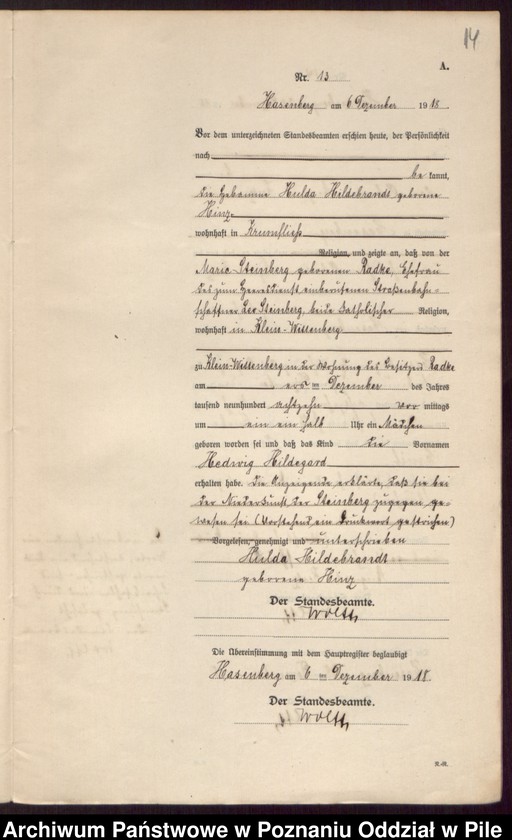 14
A.
Nr. 13
Hasenberg am 6 Dezember 1918.
Vor dem unterzeichneten Standesbeamten erschien heute, der Persönlichkeit
nach
be kannt,
die Hebamme Hulda Hildebrandt geborene
Hinz
wohnhaft in Krumfließ
Religion, und zeigte an, daß von der
Marie Steinberg geborenen Radke, Ehefrau
des zum Heeresdienst einberufenen Straßenbahn-
schaffner Leo Steinberg, beide katholischer Religion,
wohnhaft in Klein-Wittenberg
zu Klein-Wittenberg in der Wohnung des Besitzers Radke
am ersten Dezember des Jahres
tausend neunhundert achtzehn vor mittags
um ein ein halb Uhr ein Mädchen
geboren worden sei und daß das Kind die Vornamen
Hedwig Hildegard
erhalten habe. Die Anzeigende erklärte, daß sie bei
der Niederkunft der Steinberg zugegen ge-
wesen sei (Vorstehend ein Druckwort gestrichen)
Vorgelesen, genehmigt und unterschrieben
Hulda Hildebrandt
geborene Hinz
Der Standesbeamte.
Die Übereinstimmung mit dem Hauptregister beglaubigt
Hasenberg am 6 ten Dezember 1918.
Der Standesbeamte.
Archiwum Państwowe w Poznaniu Oddział w Pile